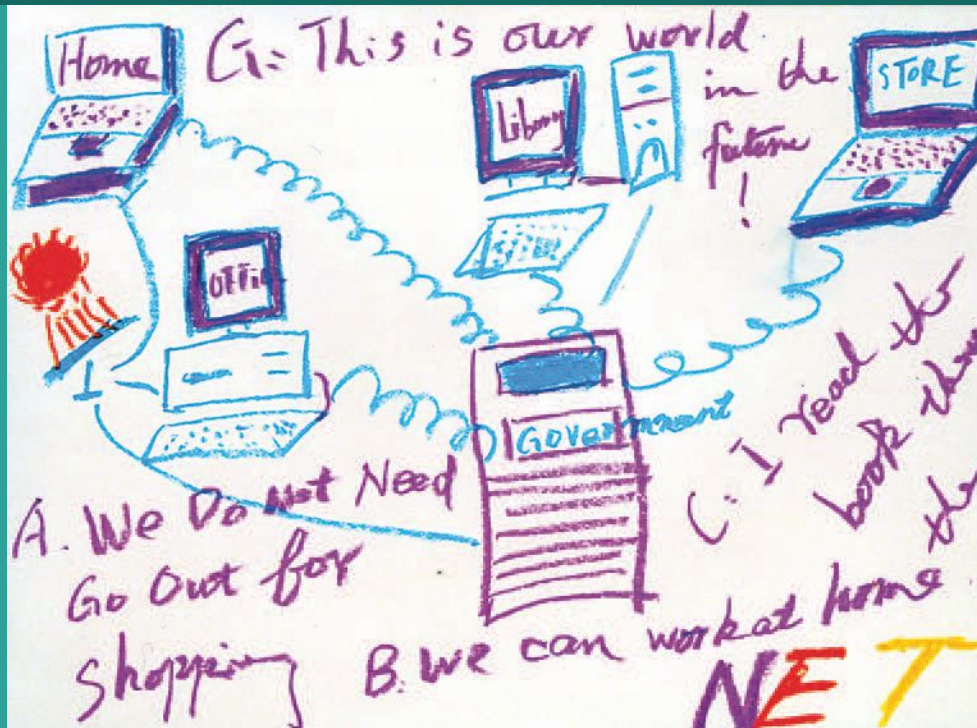 Home
G: This is our world
in the
future
!
Library
STORE
OFFic
Government
A. We Do Not Need
Go Out for
shopping
B. We can work at home.
C: I read the
book
the
NET